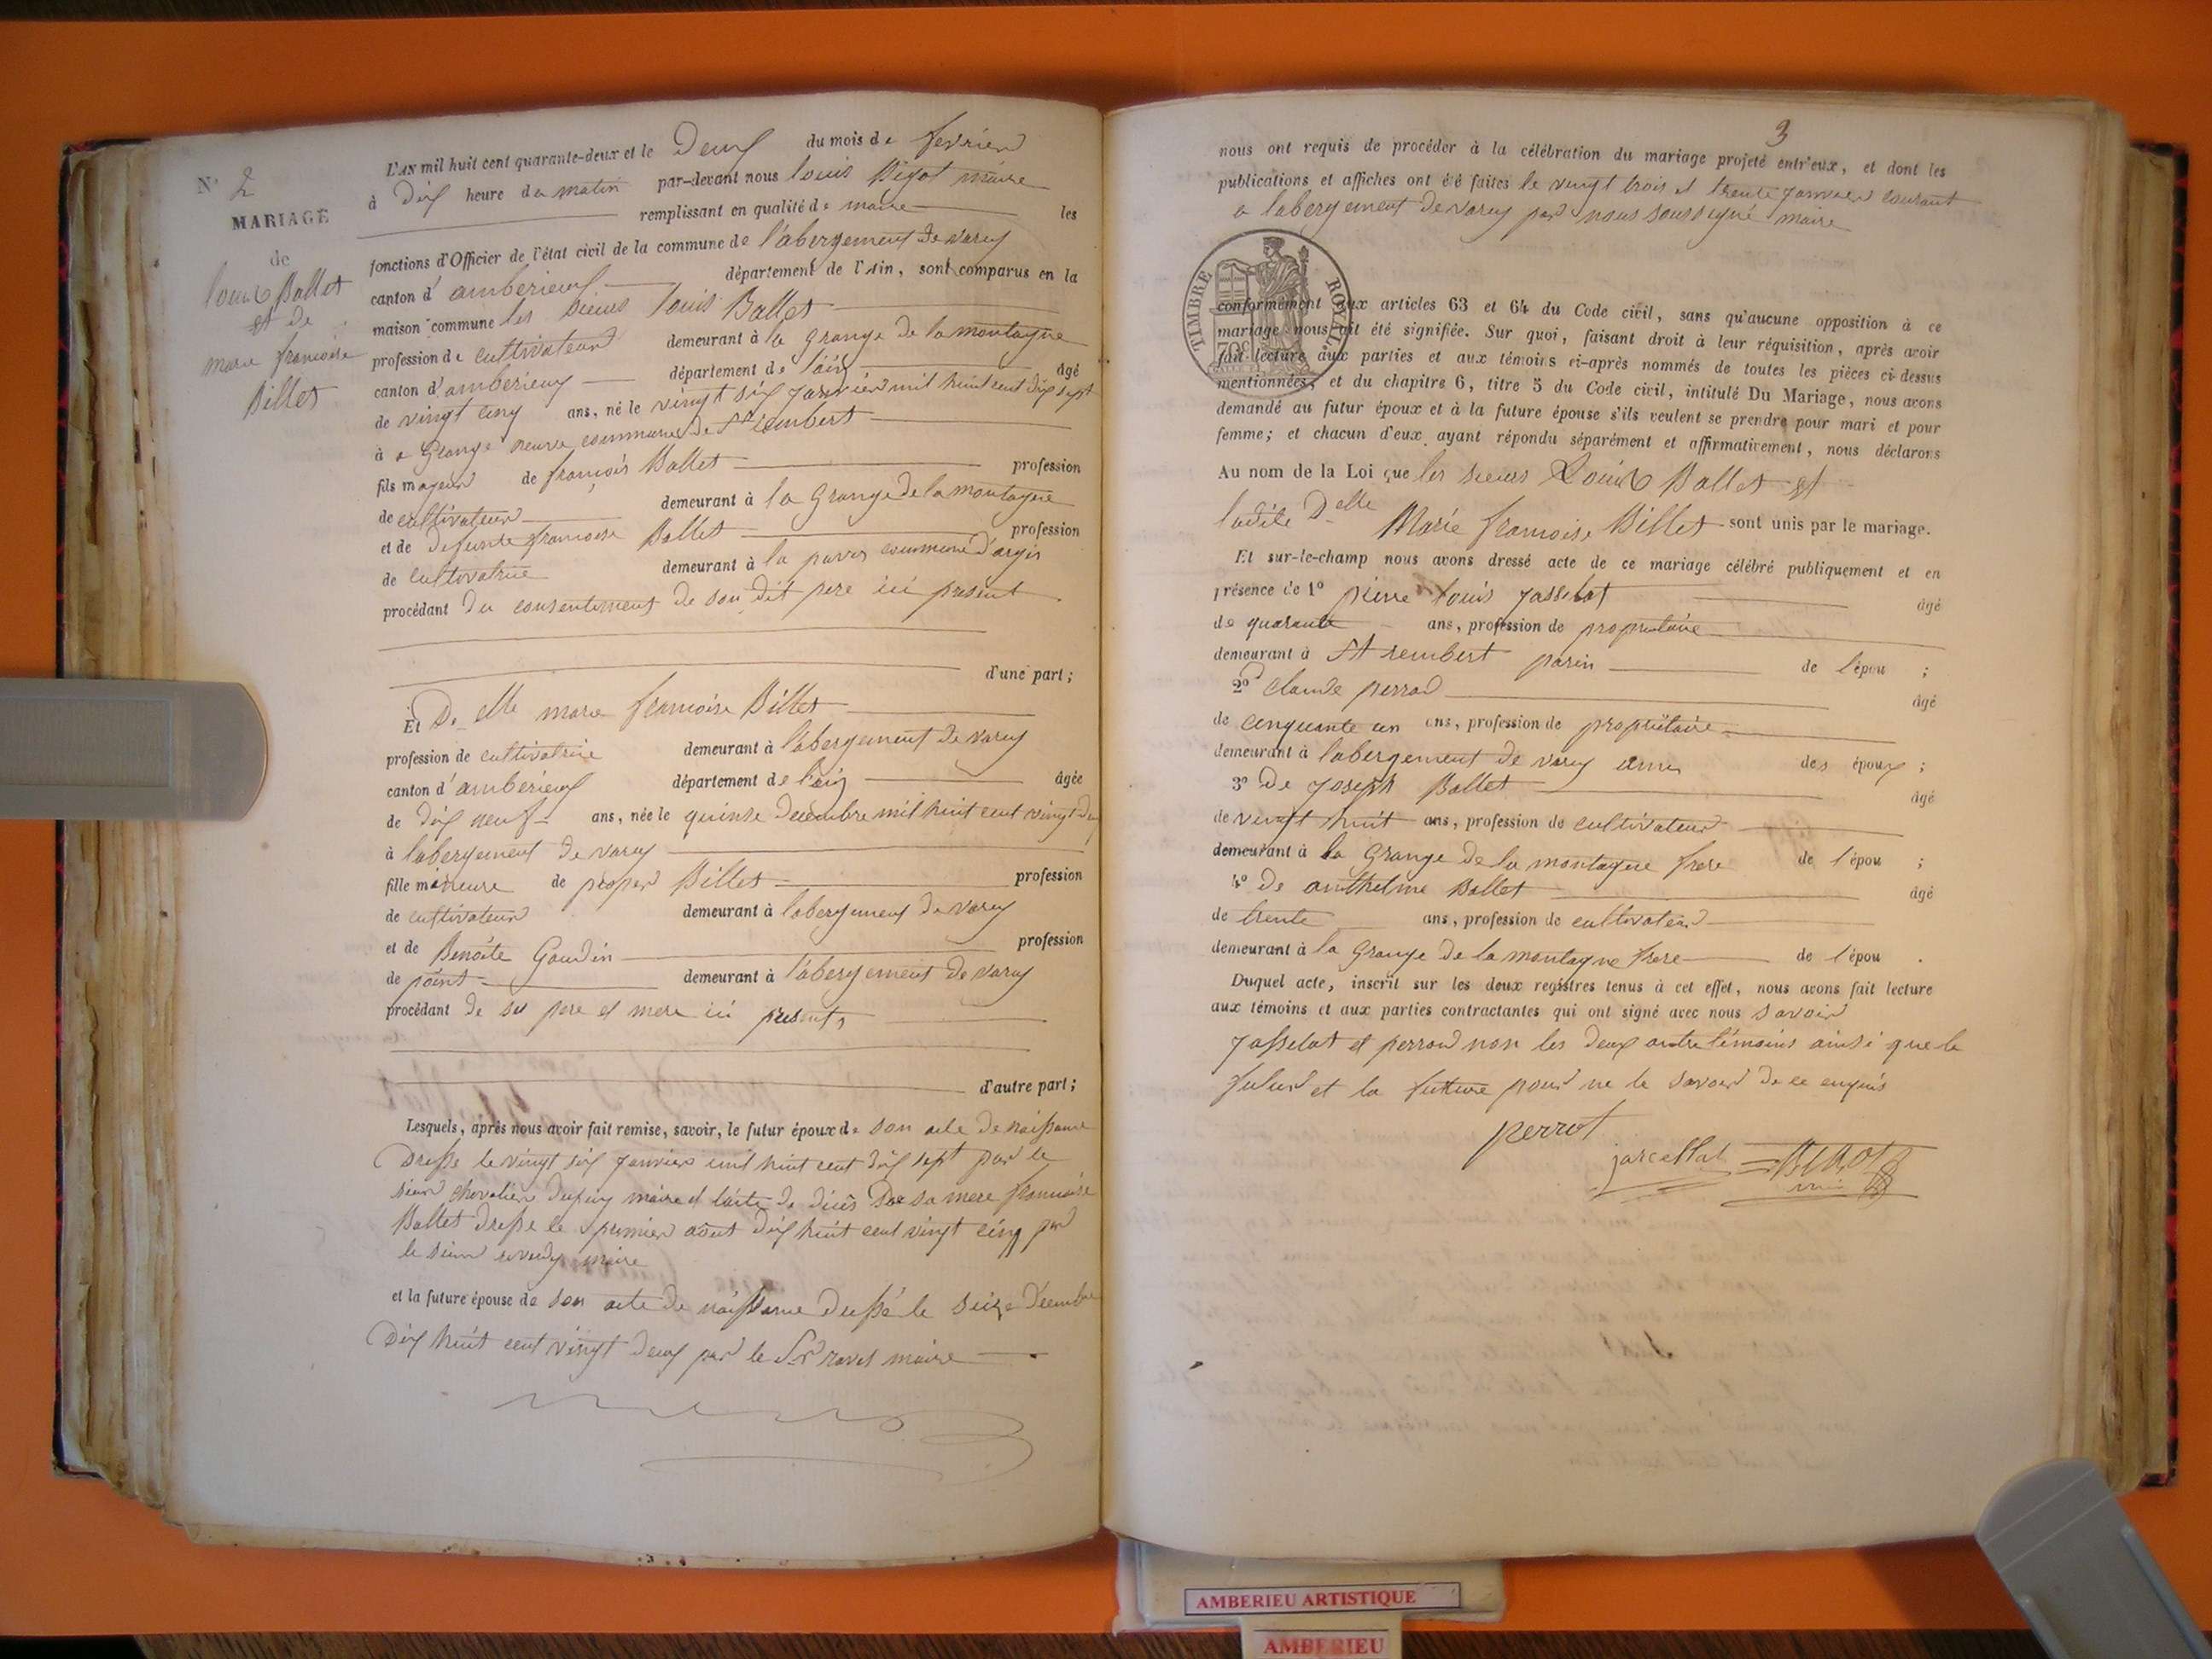 N° 2
MARIAGE
de
louis Ballet
et de
marie françoise
Billet
L'AN mil huit cent quarante-deux et le Deux du mois de fevrier
à Dix heure du matin par-devant nous louis Bigot maire
remplissant en qualité de maire les
fonctions d'Officier de l'état civil de la commune de l'abergement de varey
canton d'amberieux département de l'Ain, sont comparus en la
maison commune les sieurs louis Ballet
profession de cultivateur demeurant à la Grange de la montagne
canton d'amberieux département de l'ain âgé
de vingt cinq ans, né le vingt six janvier mil huit cent dix sept
à a Grange neuve commune de St rembert
fils majeur de françois Ballet profession
de cultivateur demeurant à la Grange de la montagne
et de defunte francoise Ballet profession
de cultivatrice demeurant à la commune d'argis
procédant du consentement de son dit pere ici present
d'une part;
Et D.elle marie francoise Billet
profession de cultivatrice demeurant à l'abergement de varey
canton d'amberieux département de l'ain âgée
de dix neuf ans, née le quinze Decembre mil huit cent vingt deux
à labergement de varey
fille mineure de Billet profession
de cultivateur demeurant à labergement de varey
et de Benoite Goudin profession
de point demeurant à l'abergement de varey
procédant de ses pere et mere ici presents
d'autre part;
Lesquels, après nous avoir fait remise, savoir, le futur époux de son acte de naissance
Dresse le vingt six janvier mil huit cent dix sept par le
sieur chevalier Dupuy maire et l'acte de décès De sa mere francoise
Ballet dresse le premier aout dix huit cent vingt cinq par
le sieur maire
et la future épouse de son acte de naissance dressé le seize Décembre
Dix huit cent vingt deux par le Sr ravet maire
3
nous ont requis de procéder à la célébration du mariage projeté entr'eux, et dont les
publications et affiches ont été faites le vingt trois et trente janvier courant
a labergement de varey par nous soussigné maire
TIMBRE ROYAL
70c
conformément aux articles 63 et 64 du Code civil, sans qu'aucune opposition à ce
mariage nous ait été signifiée. Sur quoi, faisant droit à leur réquisition, après avoir
fait lecture aux parties et aux témoins ci-après nommés de toutes les pièces ci-dessus
mentionnées, et du chapitre 6, titre 5 du Code civil, intitulé Du Mariage, nous avons
demandé au futur époux et à la future épouse s'ils veulent se prendre pour mari et pour
femme; et chacun d'eux ayant répondu séparément et affirmativement, nous déclarons
Au nom de la Loi que les sieurs Louis Ballet et
ladite Delle Marie francoise Billet sont unis par le mariage.
Et sur-le-champ nous avons dressé acte de ce mariage célébré publiquement et en
présence de 1° pierre louis Jasselat âgé
de quarante ans, profession de proprietaire
demeurant à St rembert parin de l'épou ;
2° Claude perrod âgé
de cinquante un ans, profession de propriétaire
demeurant à labergement de varey amis des époux ;
3° De Joseph Ballet âgé
de vingt huit ans, profession de cultivateur
demeurant à la Grange de la montagne frere de l'épou ;
4° De anthelme Ballet âgé
de trente ans, profession de cultivateur
demeurant à la Grange de la montagne frere de l'épou .
Duquel acte, inscrit sur les deux registres tenus à cet effet, nous avons fait lecture
aux témoins et aux parties contractantes qui ont signé avec nous savoir
Jasselat et perrod non les deux autre témoins ainsi que le
futur et la future pour ne le savoir de ce enquis
perrot
jarcellat BIGOT
AMBERIEU ARTISTIQUE
AMBERIEU